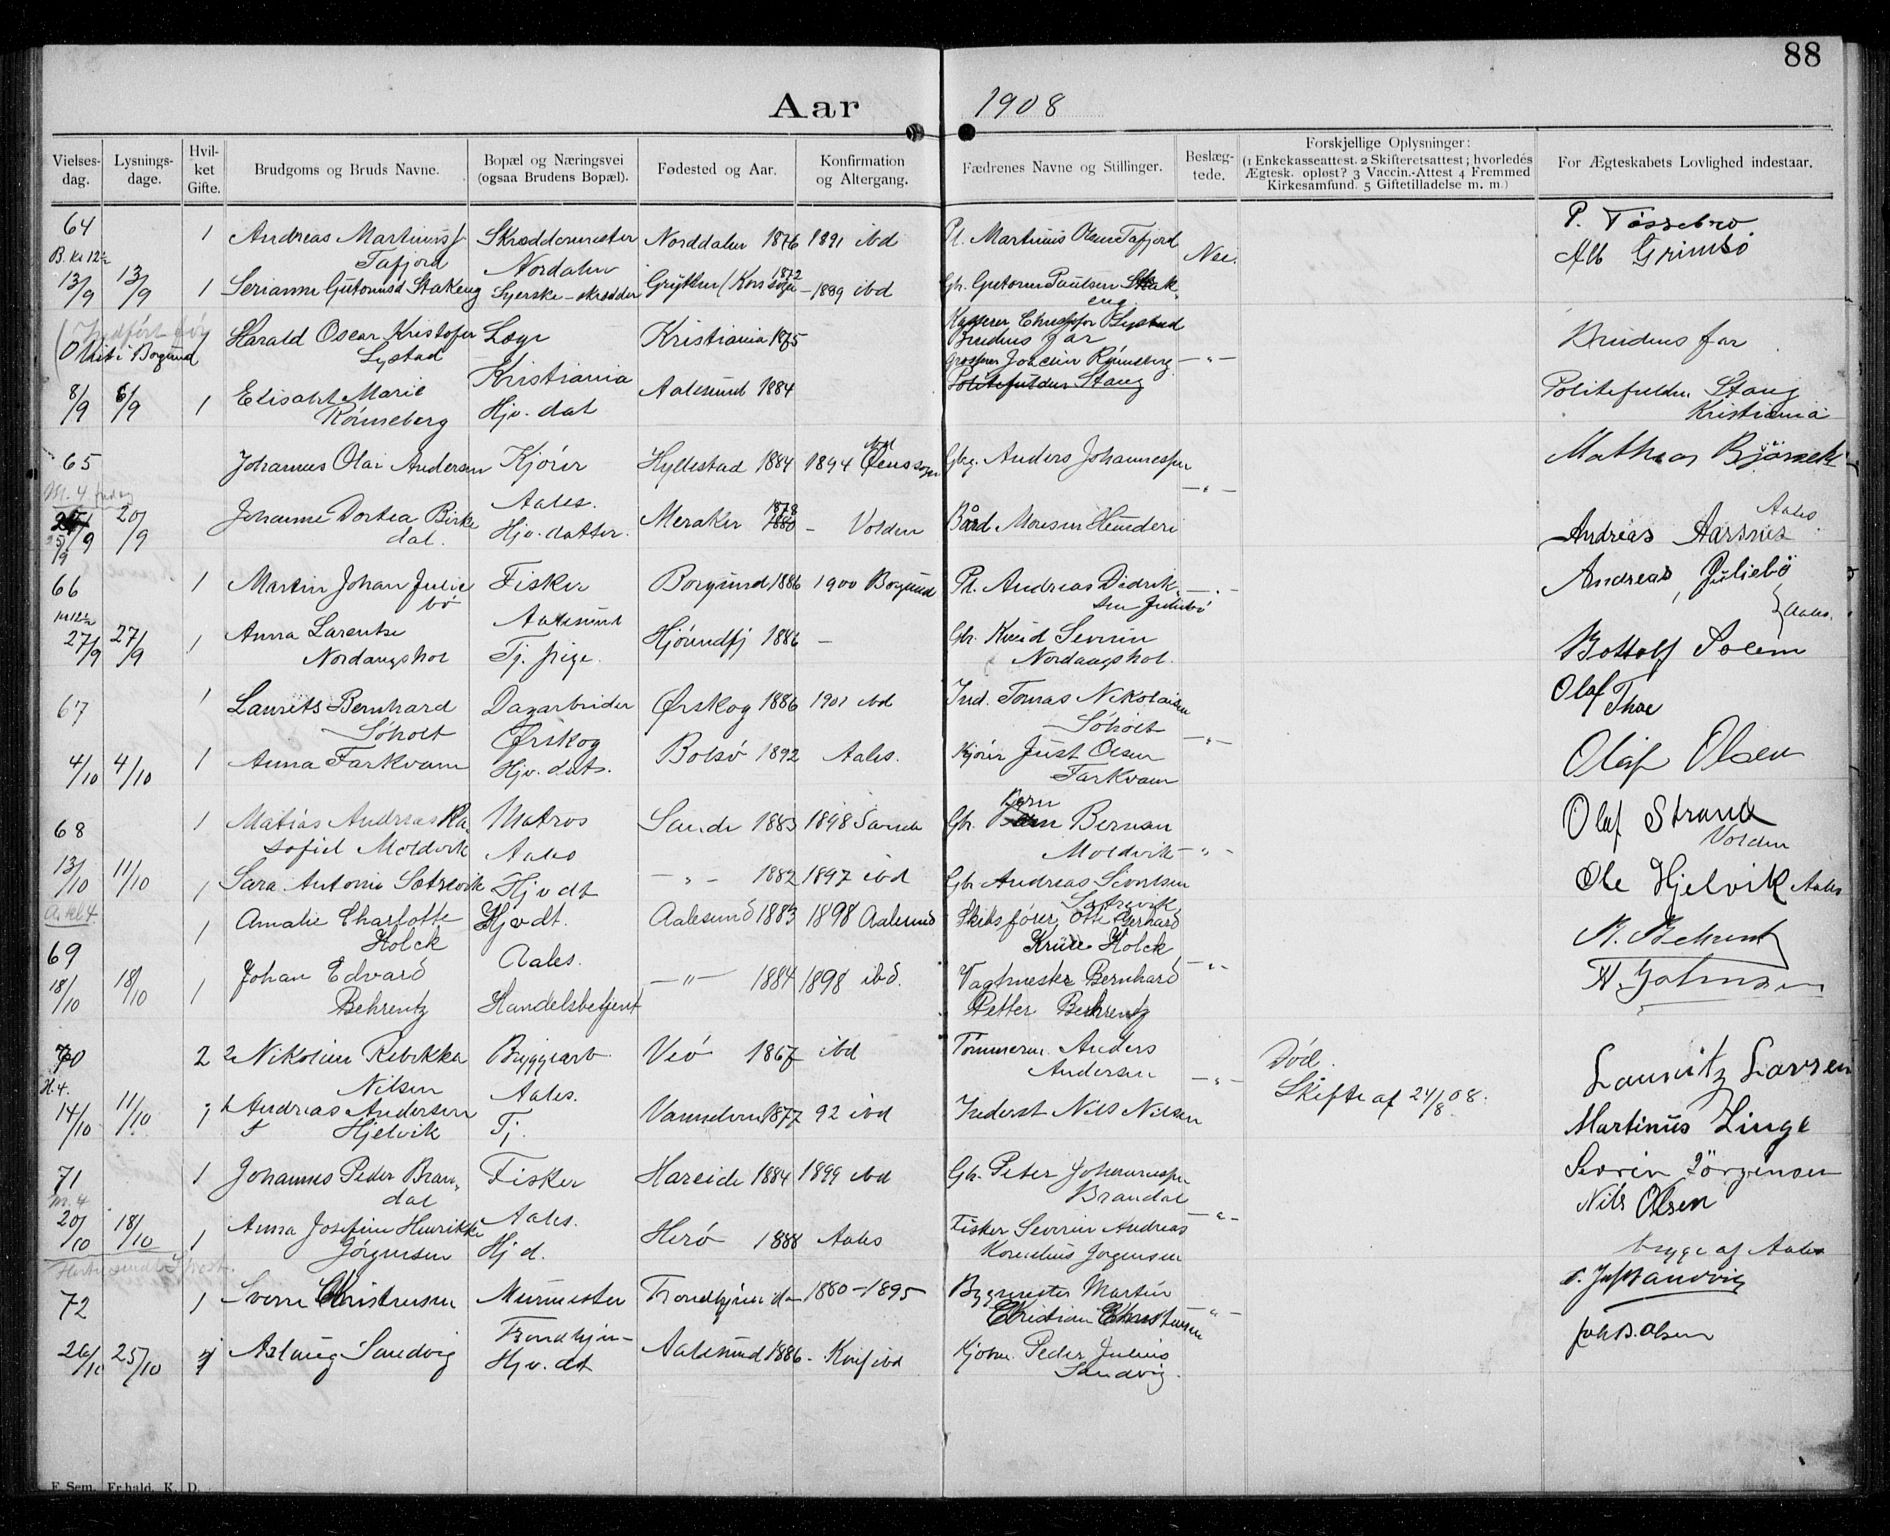 88
Aar 1908
Vielses-dag. Lysnings-dage. Hvil-ket Gifte. Brudgoms og Bruds Navne. Bopæl og Næringsvei (ogsaa Brudens Bopæl). Fødested og Aar. Konfirmation og Altergang. Fædrenes Navne og Stillinger. Beslæg-tede. Forskjellige Oplysninger: (1 Enkekasseattest. 2 Skifteretsattest; hvorledes Ægtesk. opløst? 3 Vaccin.-Attest 4 Fremmed Kirkesamfund. 5 Giftetilladelse m. m.) For Ægteskabets Lovlighed indestaar.
64 1 Andreas Martinus Skræddermester Norddalen 1876 1891 ibd Pl. Martinus Olsen Tafjord P. Tøssebro
Tafjord Nordalen Nei. Alb Grimsø
13/9 13/9 1 Serianne Gutormsd Stakeng Syerske - skrædder Grytten 1872 - 1889 ibd Gbr. Gutorm Paulsen Stakeng
Harald Oscar Kristofer Læge Kristiania 1875 Kasserer Christofer Lystad Brudens far
Lystad Kristiania Brudens far
Grosserer Joachim Rønneberg - " -
8/9 6/9 1 Elisabet Marie Aalesund 1884 Politifuldm Stang Politifuldm. Stang
Rønneberg Hjv. dat Kristiania
65 Johannes Olai Andersen Kjører Hyllestad 1884 1894 ibd Gbr. Anders Johannesen Mathias Bjørnek
Aales. - " - Aales
20/9 Johanne Dortea Birke Hjv. datter. Meraker 1878 1880 - Volden Baard Monsen Andreas Aarsnes
25/9 dal.
66 1 Martin Johan Julie Fisker Borgund 1886 1900 Borgund Pl. Andreas Didrik- Andreas Juliebø
bø Aalesund sen Juliebø - " - Aales.
27/9 27/9 1 Anna Larentse Hjørundfj 1886 - Gbr. Knud Severin Bottolf Solem
Nordangshol Tj. pige. Nordangshol.
67 1 Laurits Bernhard Dagarbeider Ørskog 1886 1901 ibd Ind. Tomas Nikolaisen Olaf Thoe
Søholt Ørskog Søholt - " -
4/10 4/10 1 Anna Farkvam Hjv. dat. Bolsø 1892 Aales. Kjører Just Olsen Olaf Olsen
Farkvam
68 1 Matias Andreas Ra- Matros Sande 1883 1898 Sande Gbr. Bernsen Olaf Strand
Moldvik Aales Moldvik - " - Volden
13/10 11/10 1 Sara Antonie Sætrevik Hjv dt - " - 1882 1897 ibd Gbr. Andreas Sivertsen Ole Hjelvik Aales
Sætrevik
1 Amalie Charlotte Hjv dt. Aalesund 1883 1898 Aalesund Skibsfører Otto Gerhard B. Behrentz
Holck Aales. Holck
69
18/10 18/10 1 Johan Edvard - " - 1884 1898 ibd. Vagtmester Bernhard - " - A. Johnsen
Behrentz Handelsbetjent Petter Behrentz
70 2 Nikoline Rebekka Bryggearb. Veø 1867 ibd Tømmerm. Anders Død. Lauritz Larsen
Nilsen Aales. Andersen - " - Skifte af 24/8 08.
14/10 11/10 Andreas Andersen Tj. Vanndven 1877 92 ibd Inderst Nils Nilsen Martinus Linge
Hjelvik
71 1 Johannes Peder Bran- Fisker Hareide 1884 1899 ibd Gbr. Peter Johannesen Severin Jørgensen
dal Aales. Brandal - " - Nils Olsen
20/10 18/10 1 Anna Josefine Henrikke Hj d. Herø 1888 Aales Fisker Severin Andreas begge af Aales
Jørgensen Kornelius Jørgensen
72 1 Sverre Christensen Murmester Trondhjem 1880 - 1895 Bygmester Martin Sandvig
Trondhjem Christian Christensen - " -
26/10 25/10 Aslaug Sandvig Hjv. dt Aalesund 1886 - Konf ibd Kjøbm. Peder Julius Joh B. Olsen
Sandvig.
F. Sem. Fr.hald. K. D.